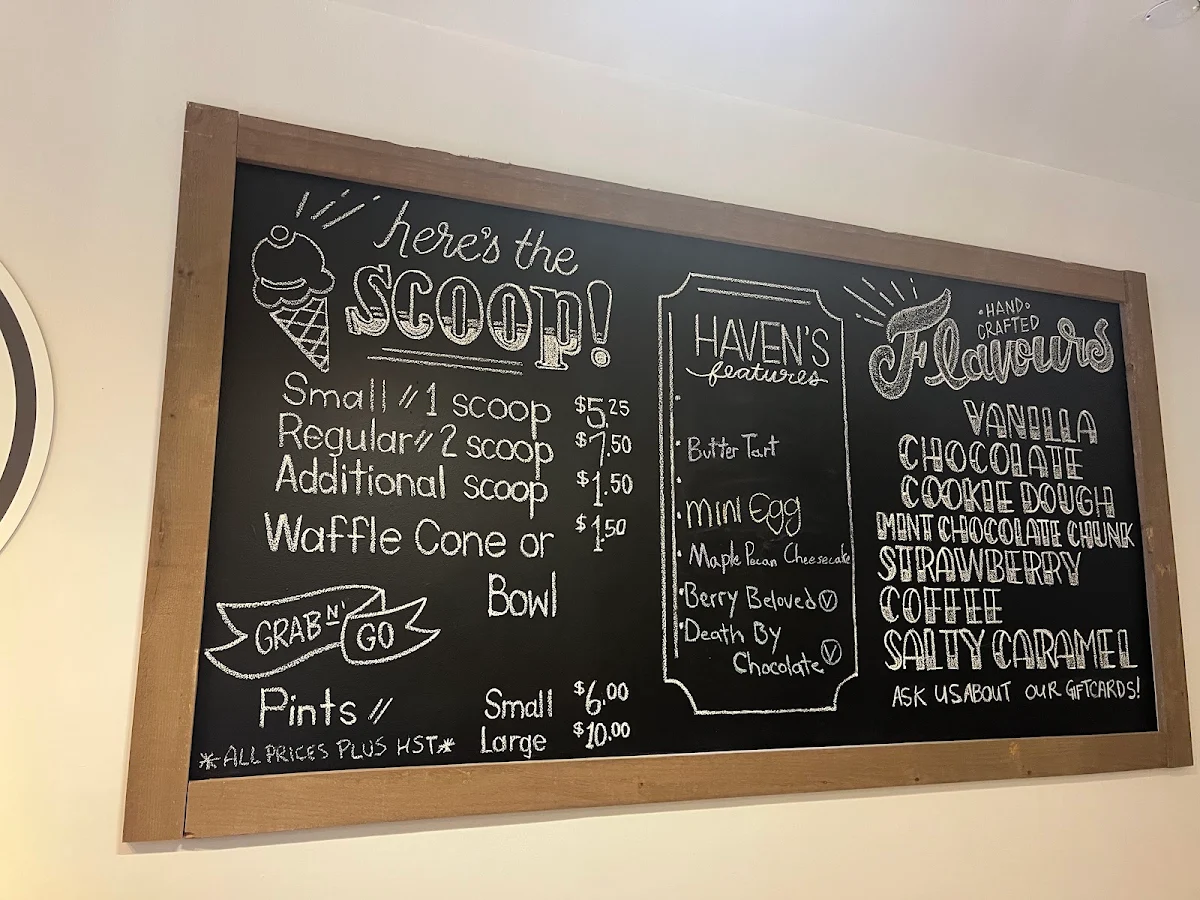 here's the
SCOOP!
Small // 1 scoop $5.25
Regular // 2 scoop $7.50
Additional scoop $1.50
Waffle Cone or $1.50
Bowl
GRAB N' GO
Pints // Small $6.00
Large $10.00
*ALL PRICES PLUS HST*
HAVEN'S
features
• Butter Tart
• Mini Egg
• Maple Pecan Cheesecake
• Berry Beloved Ⓥ
• Death By
Chocolate Ⓥ
• HAND •
CRAFTED
Flavours
VANILLA
CHOCOLATE
COOKIE DOUGH
MINT CHOCOLATE CHUNK
STRAWBERRY
COFFEE
SALTY CARAMEL
ASK US ABOUT OUR GIFTCARDS!